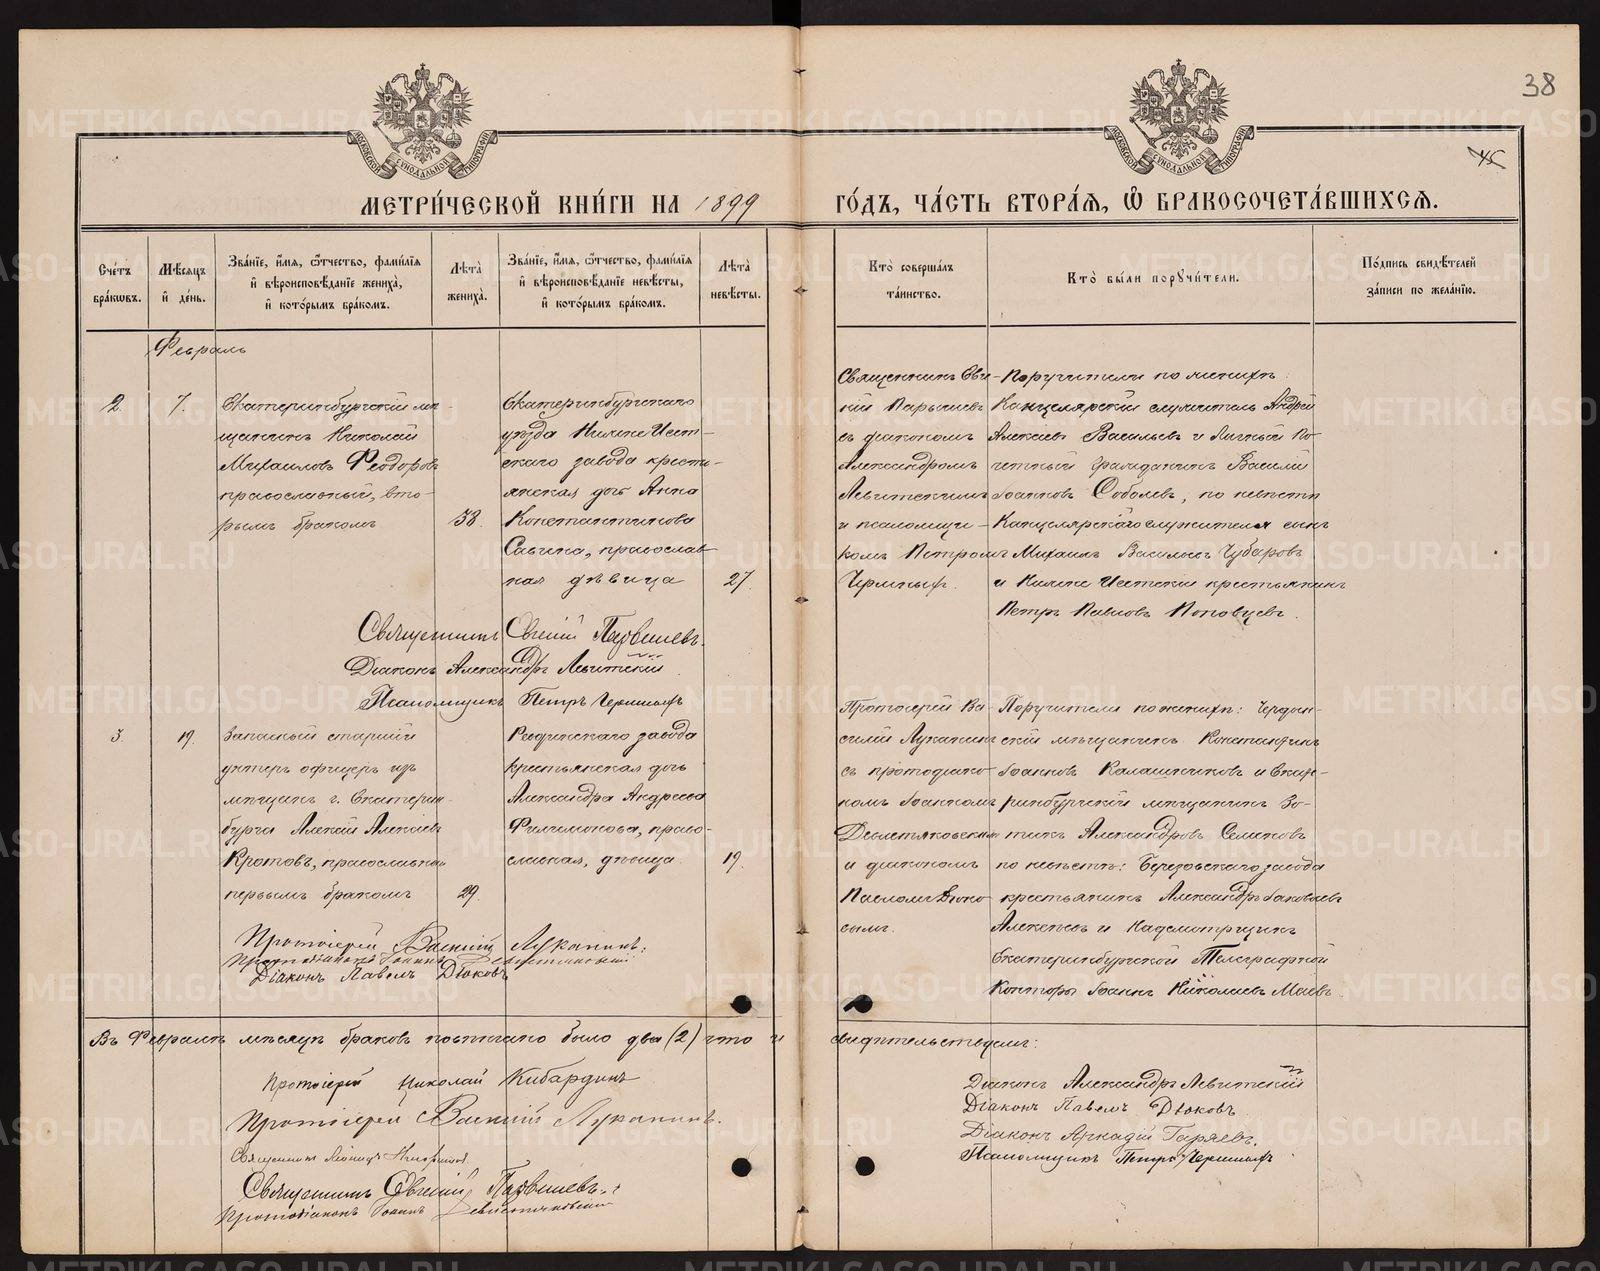 38
45
МЕТРИ́ЧЕСКОЙ КНИ́ГИ НА 1899 ГО́ДЪ, ЧА́СТЬ ВТОРА́Я, Ѡ БРАКОСОЧЕТА́ВШИХСЯ.
Сче́тъ бра́кѡвъ.
Мѣ́сяцъ и́ де́нь.
Зва́нїе, и́мя, ѻ҆́тчество, фами́лїя и҆ вѣроисповѣ́данїе жениха̀, и҆ кото́рымъ бра́комъ.
Лѣта̀ жениха̀.
Зва́нїе, и́мя, ѻ҆́тчество, фами́лїя и҆ вѣроисповѣ́данїе невѣ́сты, и҆ кото́рымъ бра́комъ.
Лѣта̀ невѣ́сты.
Кто̀ соверша́лъ та́инство.
Кто̀ бы́ли порꙋчи́тели.
По́дпись свидѣ́телей за́писи по жела́нїю.
Февраль
2.
7.
Екатеринбургскій мѣ-
щанинъ Николай
Михаиловъ Феодоровъ
православный, вто-
рымъ бракомъ
38.
Екатеринбургскаго
уѣзда Нижне Исет-
скаго завода кресть-
янская дочь Анна
Константинова
Савина, православ-
ная дѣвица
27.
Священникъ Евге-
ній Парышевъ
съ діакономъ
Александромъ
Левитскимъ
и псаломщи-
комъ Петромъ
Поручители по женихѣ
Канцелярскій служитель Андрей
Алексѣевъ Васильевъ и Личный по-
четный гражданинъ Василій
Іоанновъ Соболевъ, по невѣстѣ
Канцелярскаго служителя сынъ
Михаилъ Васильевъ Чубаровъ
и Нижне Исетскій крестьянинъ
Петръ Павловъ
Священникъ Евгеній
Діаконъ Александръ Левитскій
Псаломщикъ Петръ
3.
19.
Запасный старшій
унтеръ офицеръ изъ
мѣщанъ г. Екатерин-
бурга Алексѣй Алексѣевъ
Кротовъ, православный
первымъ бракомъ
29.
Режевскаго завода
крестьянская дочь
Александра Андреева
Филимонова, право-
славная, дѣвица
19.
Протоіерей Ва-
силій Луканинъ
съ протодіако-
номъ Іоанномъ
и діакономъ
Павломъ Дюко-
вымъ.
Поручители по женихѣ: Чердын-
скій мѣщанинъ Константинъ
Іоанновъ Калашниковъ и Екате-
ринбургскій мѣщанинъ Зо-
тикъ Александровъ Семеновъ
по невѣстѣ: Березовскаго завода
крестьянинъ Александръ Яковлевъ
Алексѣевъ и Надсмотрщикъ
Екатеринбургской Телеграфной
Конторы Іоаннъ Николаевъ Маевъ
Протоіерей Василій Луканинъ.
Протодіаконъ Іоаннъ
Діаконъ Павелъ Дюковъ
Въ Февралѣ мѣсяцѣ браковъ повѣнчано было два (2) что и свидѣтельствуемъ:
Протоіерей Николай Кибардинъ
Протоіерей Василій Луканинъ.
Священникъ Леонидъ
Священникъ Евгеній
Протодіаконъ Іоаннъ
Діаконъ Александръ Левитскій
Діаконъ Павелъ Дюковъ
Діаконъ Аркадій Гаряевъ.
Псаломщикъ Петръ
METRIKI.GASO-URAL.RU